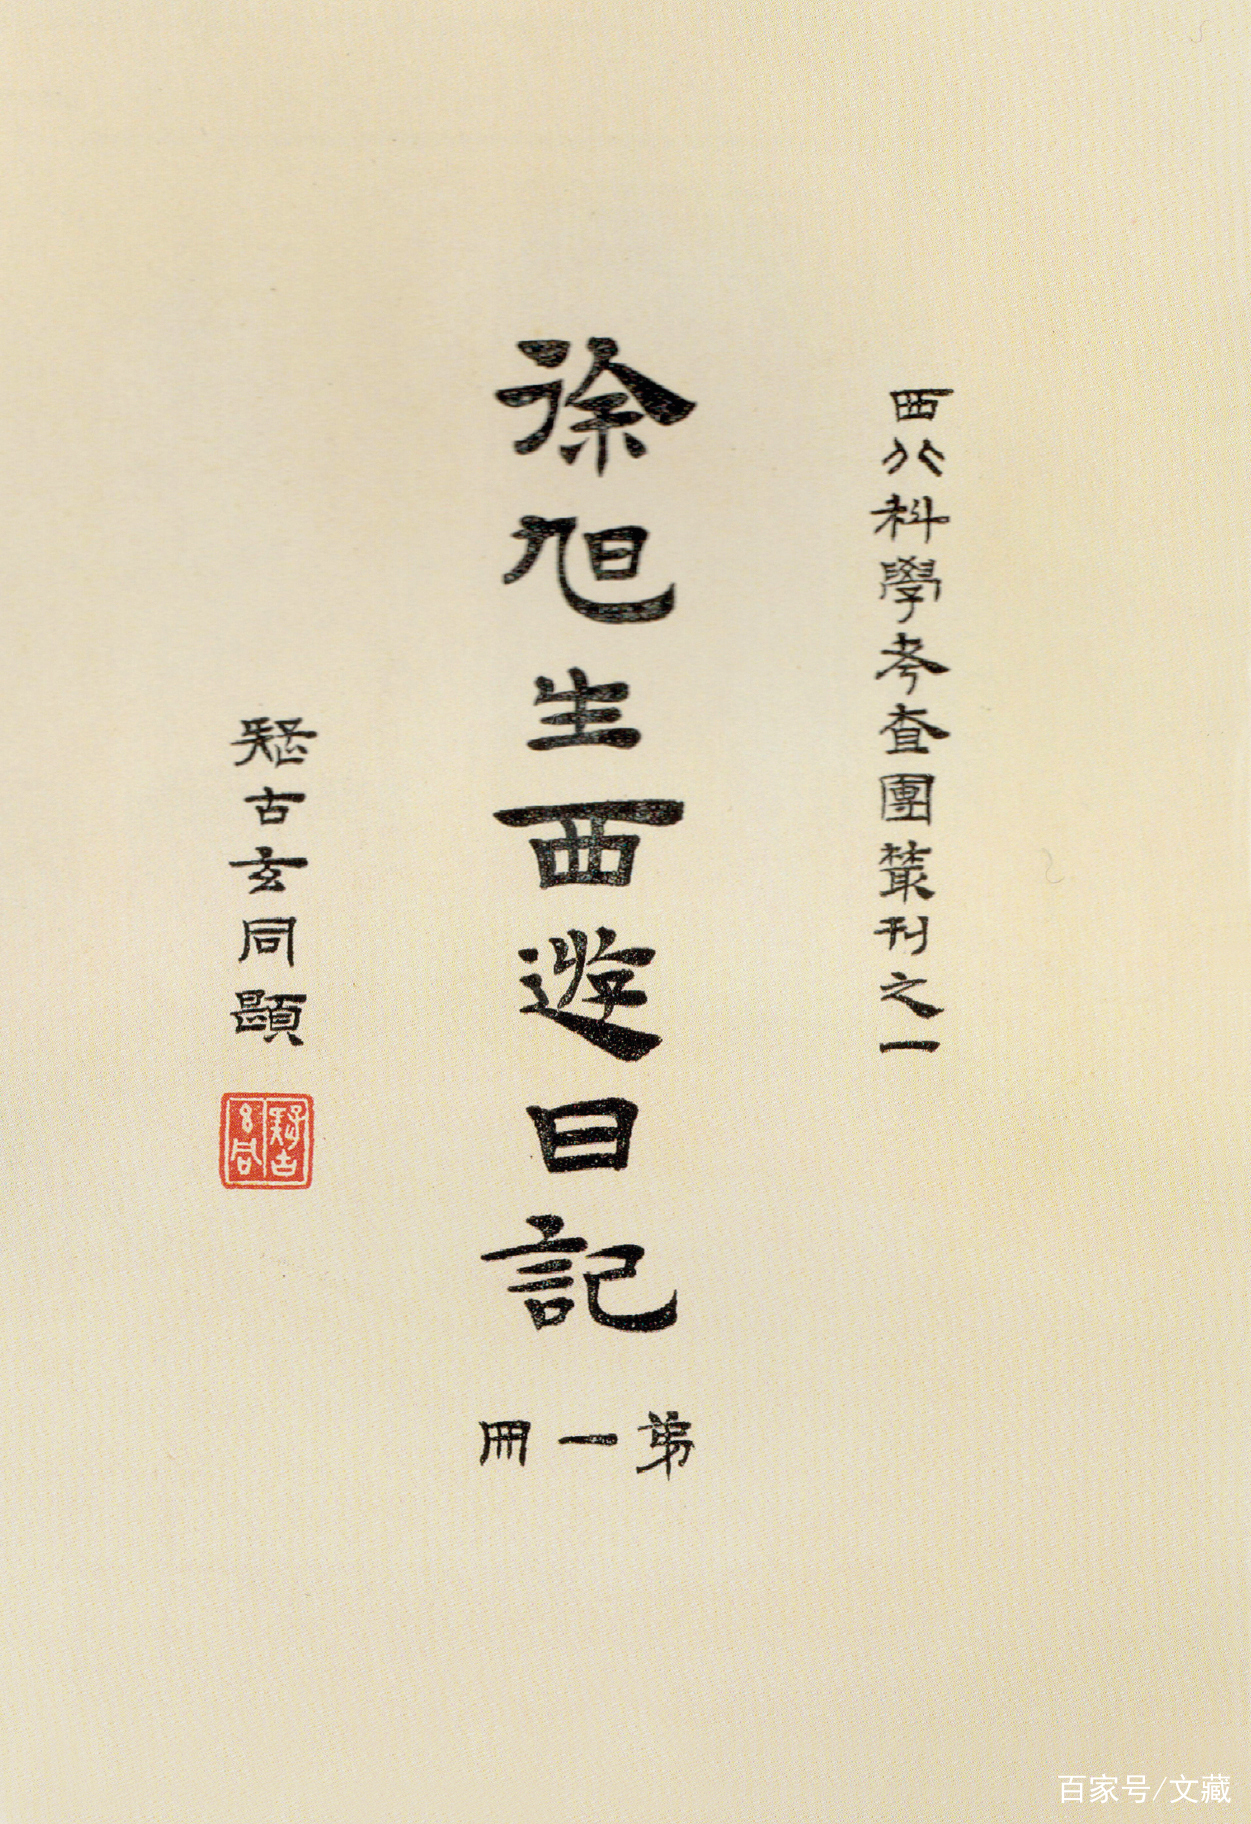 西北科學考查團叢刊之一
徐旭生西遊日記
第一冊
疑古玄同題
疑古玄同
百家号/文藏